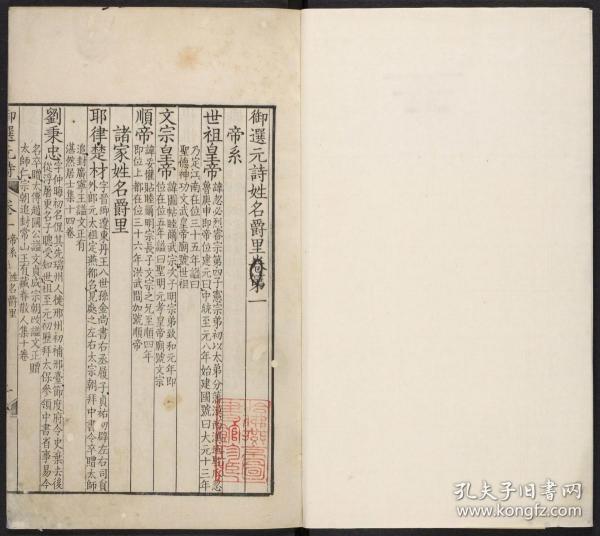 御選元詩姓名爵里卷第一
帝系
世祖皇帝
諱忽必烈睿宗第四子憲宗弟初以太弟分藩
魯庚申即帝位建元曰中統至元八年始建國號曰大元十三年
乃定江南在位三十五年諡曰
聖德神功文武皇帝廟號世祖
文宗皇帝
諱圖帖睦爾武宗次子明宗弟致和元年即
位在位五年諡曰聖明元孝皇帝廟號文宗
順帝
諱妥懽貼睦爾明宗長子文宗之兄至順四年
即位上都在位三十六年洪武間加號順帝
諸家姓名爵里
耶律楚材
字晉卿遼東丹王八世孫金尚書右丞履子貞祐初辟左右司員
外郎元太祖定燕都召見處之左右太宗朝拜中書令卒贈太師
追封廣寧王諡文正有
湛然居士集十四卷
劉秉忠
字仲晦初名侃其先瑞州人徙邢州初補邢臺節度府令史棄去後
從浮屠更名子聰受知世祖至元初歷拜太保參領中書省事易今
名卒贈太傅趙國公諡文貞成宗朝改諡文正贈
太師仁宗朝追封常山王有藏春散人集十卷
御選元詩
卷一
帝系
姓名爵里
一
孔夫子旧书网
www.kongfz.com